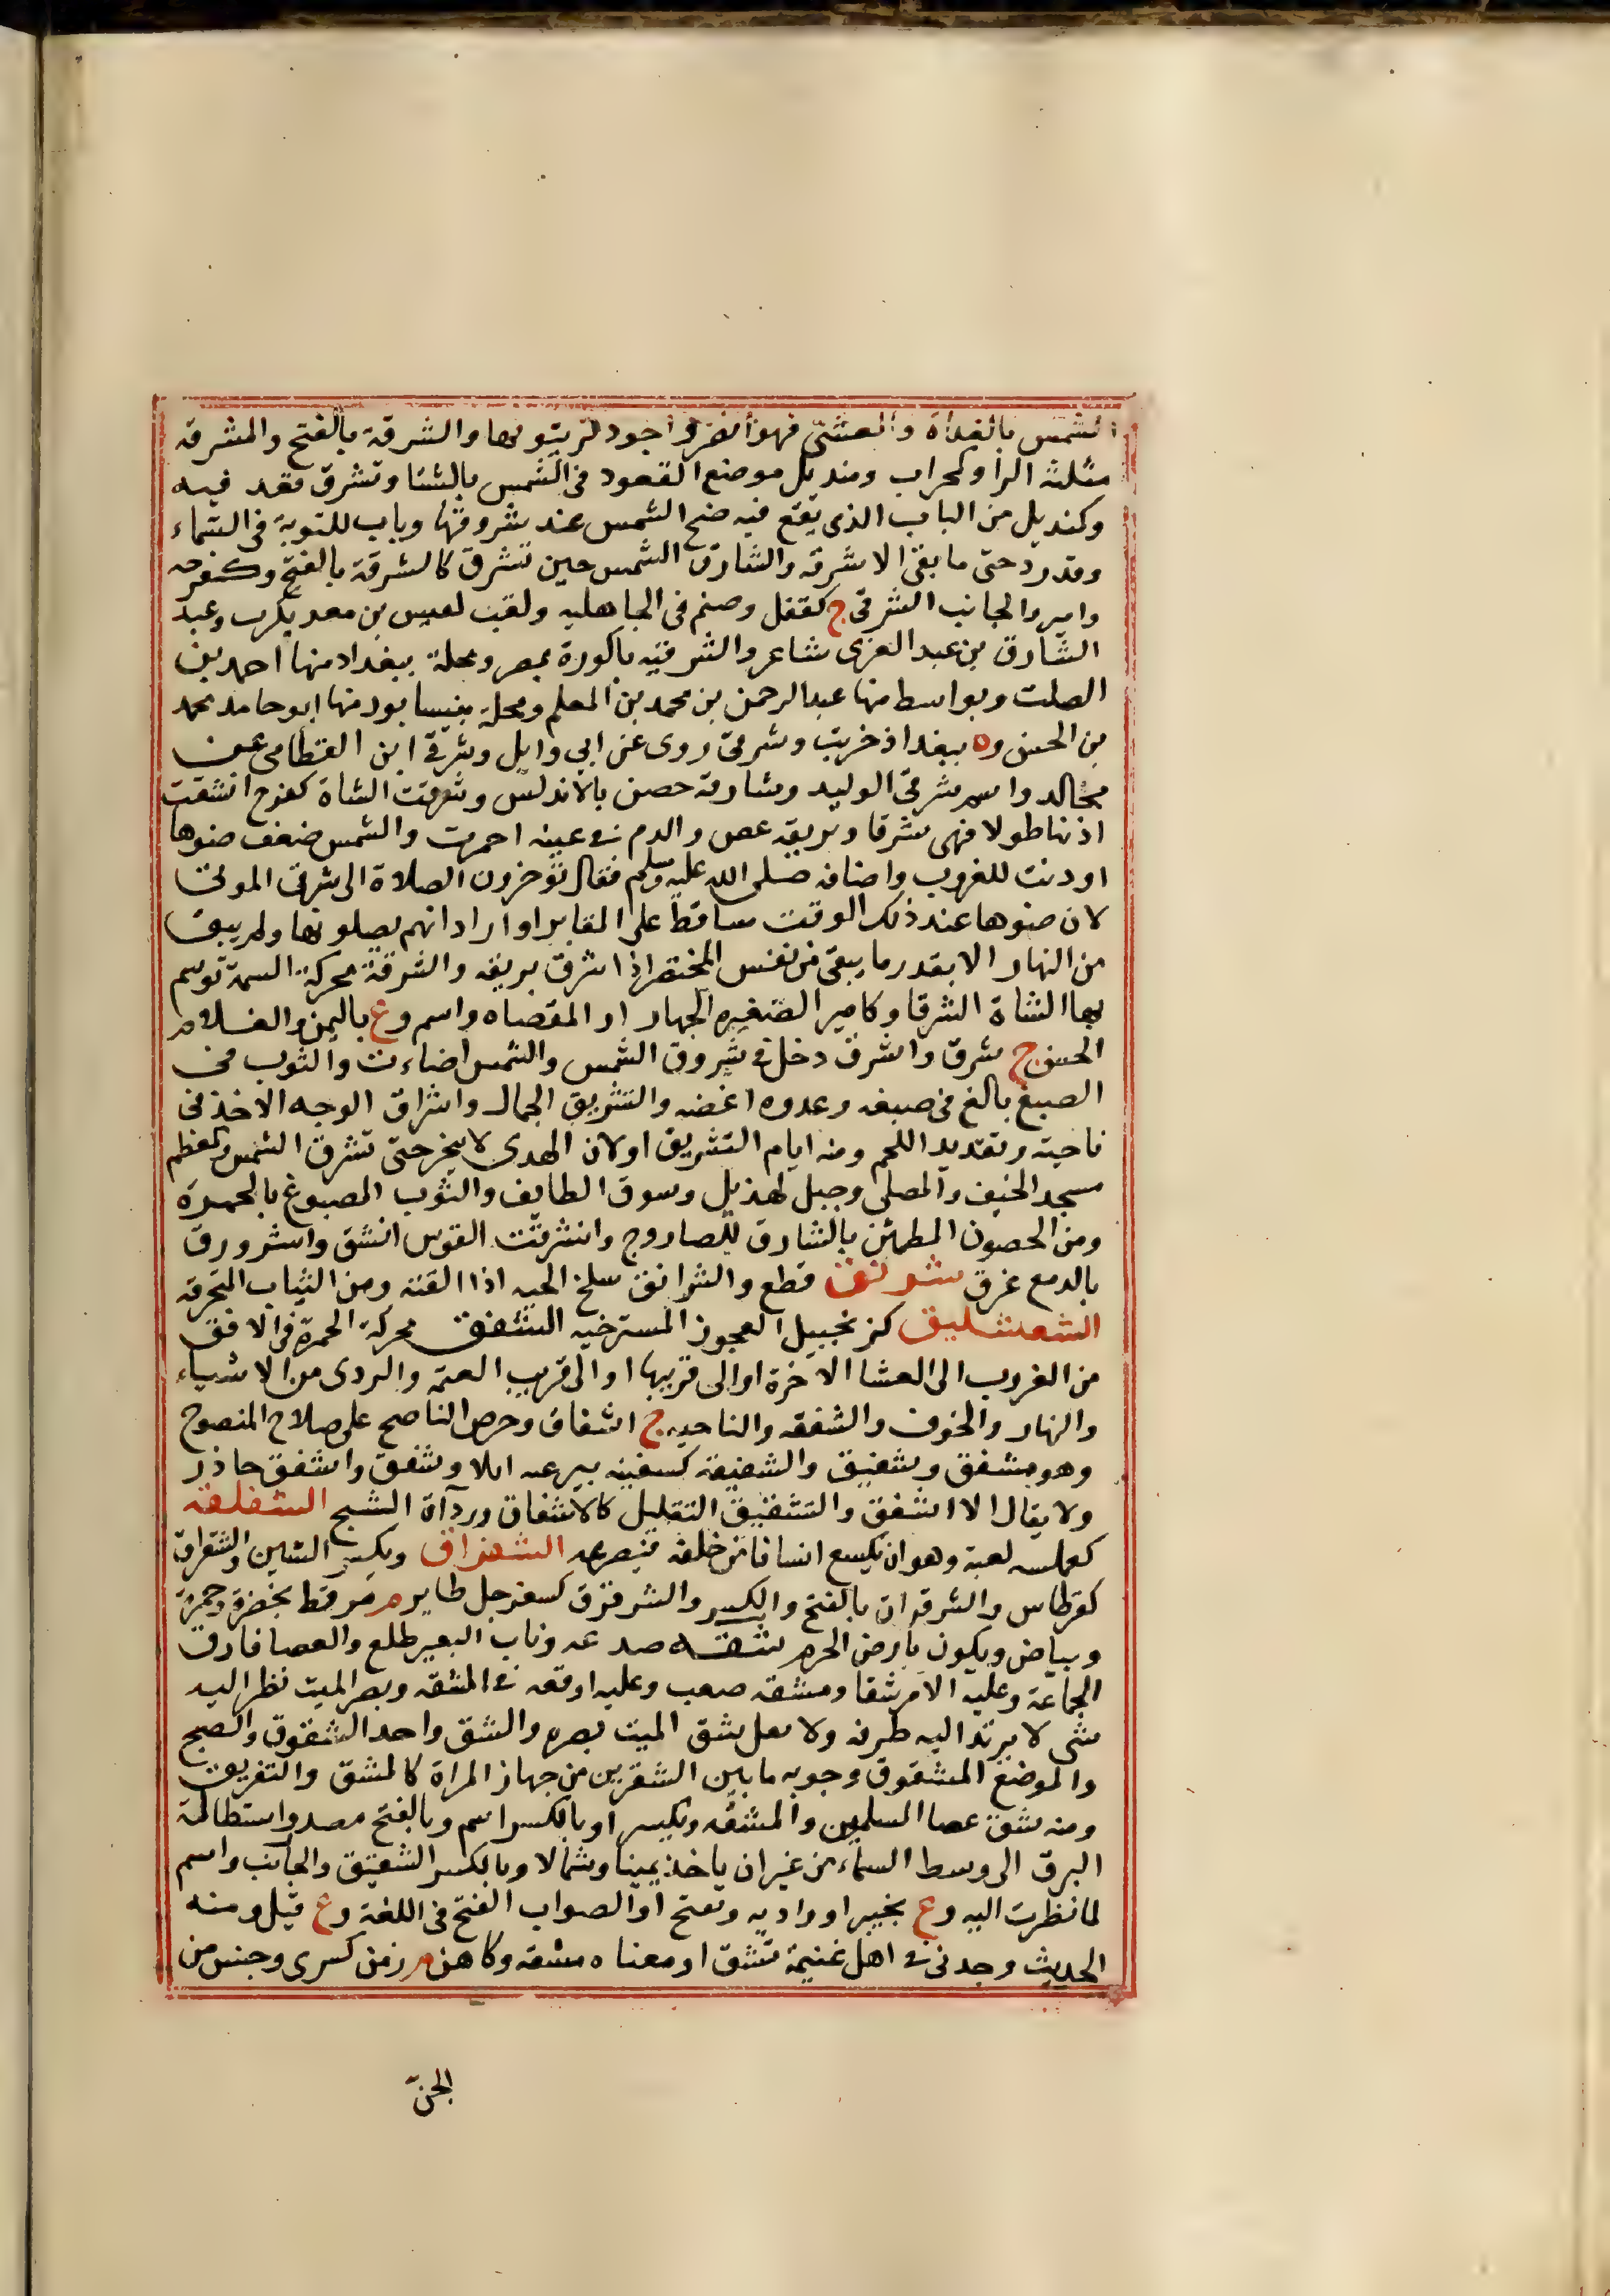 الشمس بالغداة والعشي فهو أنضر وأجود لزيتونها والشرقة بالفتح والمشرقة
مثلثة الرا وكمحراب ومنديل موضع القعود في الشمس بالشتا وتشرق قعد فيه
وكنديل من الباب الذي يقع فيه ضح الشمس عند شروقها وباب للتوبة في السماء
وقد رد حتى ما بقي الا شرقه والشارق الشمس حين تشرق كالشرقة بالفتح وكفرحه
وامير والجانب الشرقي ج كقفل وصنم في الجاهليه ولقب لعيس بن معد يكرب وعبد
الشارق بن عبد العزى شاعر والشرقيه باكورة بمصر ومحلة ببغداد منها احمد بن
الصلت وبواسط منها عبد الرحمن بن محمد بن المعلم ومحلة بنيسابور منها ابو حامد محمد
بن الحسن وه ببغداد خربت وشرقي روى عن ابي وايل وشرقي ابن القطامي عن
مجالد واسمر شرقي الوليد وشارقة حصن بالاندلس وشرقت الشاة كفرح انشقت
اذنها طولا فهي شرقا وبريقه غص والدم في عينه احمرت والشمس ضعف ضوها
او دنت للغروب واضافه صلى الله عليه وسلم فقال تؤخرون الصلاة الى شرق الموتى
لان ضوها عند ذلك الوقت ساقط على المقابر او اراد انهم يصلونها ولم يبق
من النهار الا بقدر ما يبقى من نفس المحتضر اذا شرق بريقه والشرقة محركة السمة توسم
بها الشاة الشرقا وكامير الصغيره الجهاز او المفضاه واسم وع باليمن والغلام
الحسن ج شرق واشرق دخل في شروق الشمس والشمس اضاءت والثوب في
الصبغ بالغ في صبغه وعدوه اغصه والتشريق الجمال واشراق الوجه الاخذ في
ناحية وتقديد اللحم ومنه ايام التشريق او لان الهدى لا ينحر حتى تشرق الشمس وكمعظم
مسجد الخيف والمصلى وجبل لهذيل وسوق الطايف والثوب المصبوغ بالحمرة
ومن الحصون المطمئن بالشارق للصاروج وانشرقت القوس انشق واشرورق
بالدمع غرق شرنق قطع والشرانق سلخ الحيه اذا القته ومن الثياب المتخرقه
الشعشليق كزنجبيل العجوز المسترخيه الشفق محركة الحمرة في الافق
من الغروب الى العشا الاخرة او الى قريبها او الى قريب العتمه والردى من الاشياء
والنهار والخوف والشفقه والناحيه ج اشفاق وحرص الناصح على صلاح المنصوح
وهو مشفق وشفيق والشفيقة كسفينه بير عند ابلا وشفق واشفق حاذر
ولا يقال الا اشفق والتشفيق التقليل كالاشفاق ورداءة النسج الشفلقه
كعملسه لعبة وهو ان يكسع انسانا من خلفه فيصرعه الشقراق ويكسر الشين والشقراق
كقرطاس والشرقراق بالفتح والكسر والشرقرق كسفرجل طاير م مرقط بخضرة وحمرة
وبياض ويكون بارض الحرم شقه صدعه وناب البعير طلع والعصا فارق
الجماعة وعليه الامر شقا ومشقه صعب وعليه اوقعه في المشقه وبصر الميت نظر اليه
شي لا يرتد اليه طرفه ولا تقل شق الميت بصره والشق واحد الشقوق والصبح
والموضع المشقوق وجوبه ما بين الشفرين من جهاز المراة كالمشق والتفريق
ومنه شق عصا المسلمين والمشقه ويكسر او بالكسر اسم وبالفتح مصدر واستطالة
البرق الى وسط السماء من غير ان ياخذ يمينا وشمالا وبالكسر الشقيق والجانب واسم
لما نظرت اليه وع بخيبر او واد به وتفتح او الصواب الفتح في اللغة وع قيل ومنه
الحديث وجدني في اهل غنيمة تشق او معناه مشقه وكاهن م زمن كسرى وجنس من
الجن